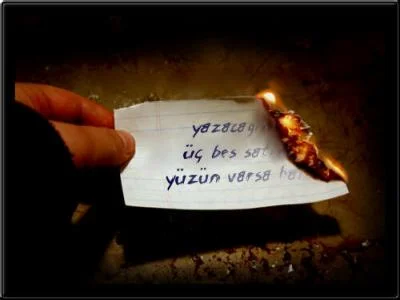 yazacağın
üç beş satır
yüzün varsa